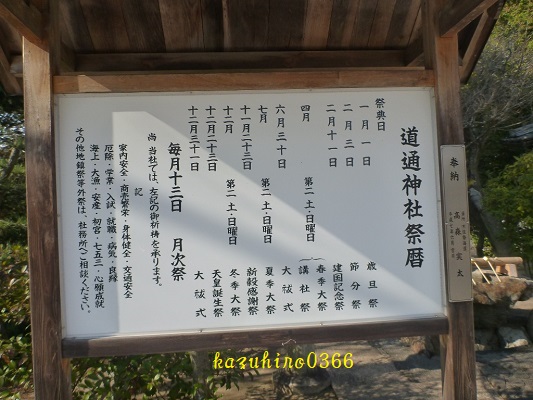 道通神社祭暦
祭典日
一月一日 歳旦祭
二月三日 節分祭
二月十一日 建国記念祭
四月 第二土・日曜日 春季大祭
講社祭
六月三十日 大祓式
七月 第二土・日曜日 夏季大祭
十一月二十三日 新穀感謝祭
十二月 第二土・日曜日 冬季大祭
十二月二十三日 天皇誕生祭
十二月三十一日 大祓式
毎月十三日 月次祭
尚 当社では、左記の御祈祷を承ります。
記
家内安全・商売繁栄・身体健全・交通安全
厄除・学業・入試・就職・病気・良縁
海上・大漁・安産・初宮・七五三・心願成就
その他地鎮祭等外祭は、社務所へご相談ください。
奉納
kazuhino0366